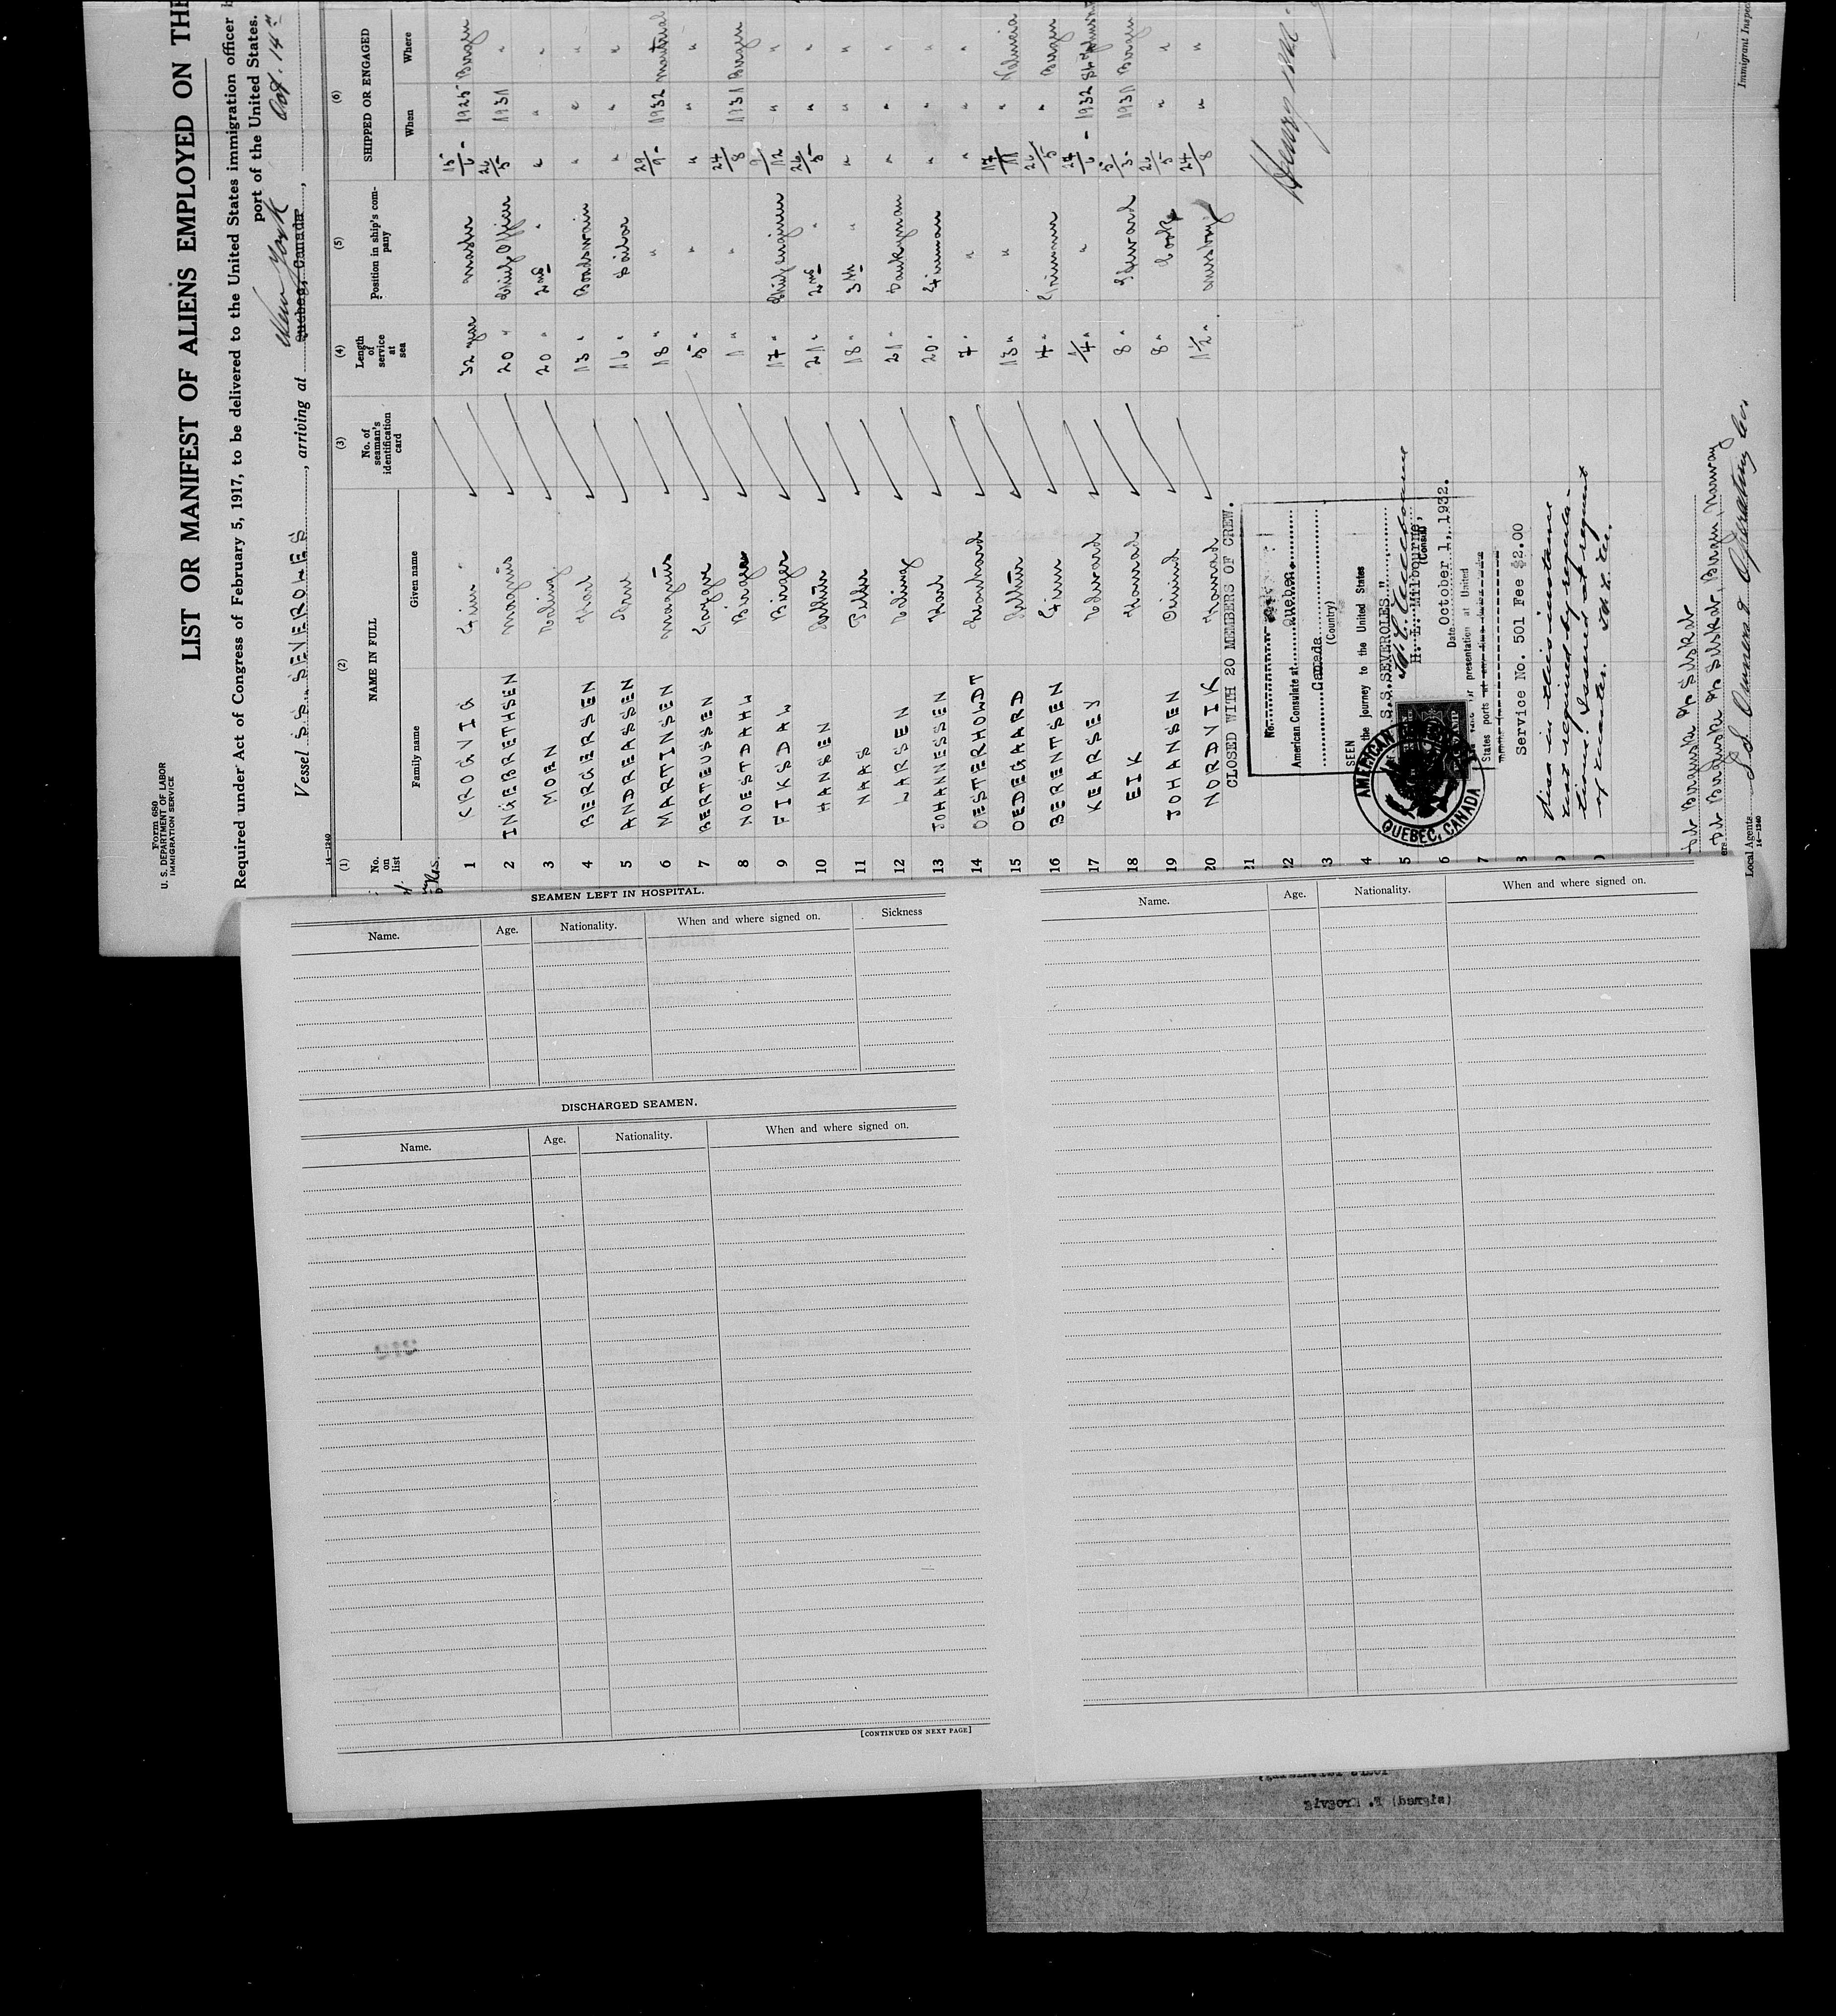 Form 680
U. S. DEPARTMENT OF LABOR
IMMIGRATION SERVICE
LIST OR MANIFEST OF ALIENS EMPLOYED ON THE
Required under Act of Congress of February 5, 1917, to be delivered to the United States immigration officer
port of the United States.
Vessel S.S. SEVEROLES, arriving at Quebec, Canada New York, Oct. 14th
14—1240
(1) (2) (3) (4) (5) (6)
No. on list NAME IN FULL No. of seaman's identification card Length of service at sea Position in ship's company SHIPPED OR ENGAGED
Family name Given name When Where
1 CROGVIG Finn 32 year Master 15/6 - 1925 Bergen
2 INGEBRETHSEN Magnus 20 " Chief Officer 26/5 1931 "
3 MORN Erling 20 " 2nd " " " "
4 BERGERSEN Karl 13 " Boatswain " " "
5 ANDREASSEN Arne 16 " Sailor " " "
6 MARTINSEN Magnus 18 " " 29/9 - 1932 Montreal
7 BERTEUSSEN 5 " " " " "
8 NOESTDAHL Birger 1 " " 24/8 1931 Bergen
9 FIKSDAL Birger 17 " Chief engineer 9/12 " "
10 HANSEN 21 " 2nd " 26/5 " "
11 NAAS Peller 18 " 3th " " " "
12 LARSEN Edling 21 " Donkeyman " " "
13 JOHANNESSEN Karl 20 " Fireman " " "
14 OESTERHOLDT Leonhard 7 " " " " "
15 OEDEGAARD 13 " " 17/11 "
16 BERENTSEN Finn 4 " Trimmer 26/5 " Bergen
17 KEARSEY Edward 1/4 " " 27/6 - 1932
18 EIK Haavard 8 " Steward 5/3 - 1931 Bergen
19 JOHANSEN Eivind 8 " Cook 26/5 " "
20 NORDVIK Haavard 1 1/2 " Messboy 24/8 " "
CLOSED WITH 20 MEMBERS OF CREW.
21
No.
22
American Consulate at Quebec.
3
Canada
(Country)
SEEN
4
the journey to the United States
S.S. SEVEROLES "
5
H. L. Milbourne,
(Consul)
6
Date October 1, 1932.
or presentation at United
7
States ports
AMERICAN
QUEBEC, CANADA
8
Service No. 501 Fee $2.00
9
Visa in this instance
not required by regula-
tions. Issued at request
of master.
Det Bergenske D/S Selskab
Det Bergenske D/S Selskab, Bergen, Norway
Local Agents
14—1240
Immigrant Inspec
SEAMEN LEFT IN HOSPITAL.
Name. Age. Nationality. When and where signed on. Sickness
DISCHARGED SEAMEN.
Name. Age. Nationality. When and where signed on.
[CONTINUED ON NEXT PAGE]
Name. Age. Nationality. When and where signed on.
(signed) F. Krogvig